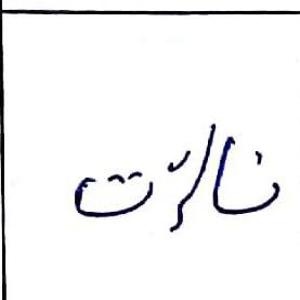 نالرّت